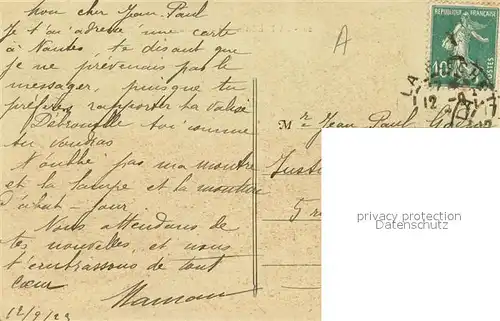 Mon cher Jean-Paul
Je t'ai adressé une carte
à Nantes, te disant que
je ne prévenais pas le
messager, puisque tu
préfères rapporter la valise
Débrouille toi comme
tu voudras
N'oublie pas ma montre
et la lampe et la monture
d'abat-jour.
Nous attendons de
tes nouvelles, et nous
t'embrassons de tout
cœur Maman
12/9/23
A
REPUBLIQUE FRANÇAISE
10
POSTES
LA
12
Mr Jean Paul
5
privacy protection
Datenschutz